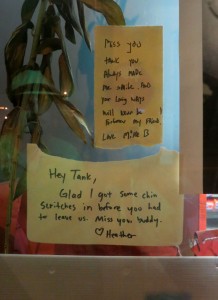 Miss you
thank you.
Always made
me smile. And
your long
will never be
my friend.
Love Mike B
Hey Tank,
Glad I got some chin
scritches in before you had
to leave us. Miss you buddy.
♡ Heather